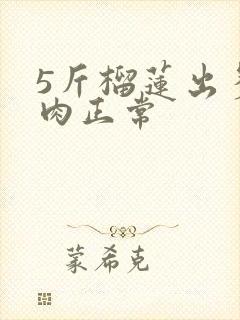 5斤榴莲出
肉正常
蒙希克